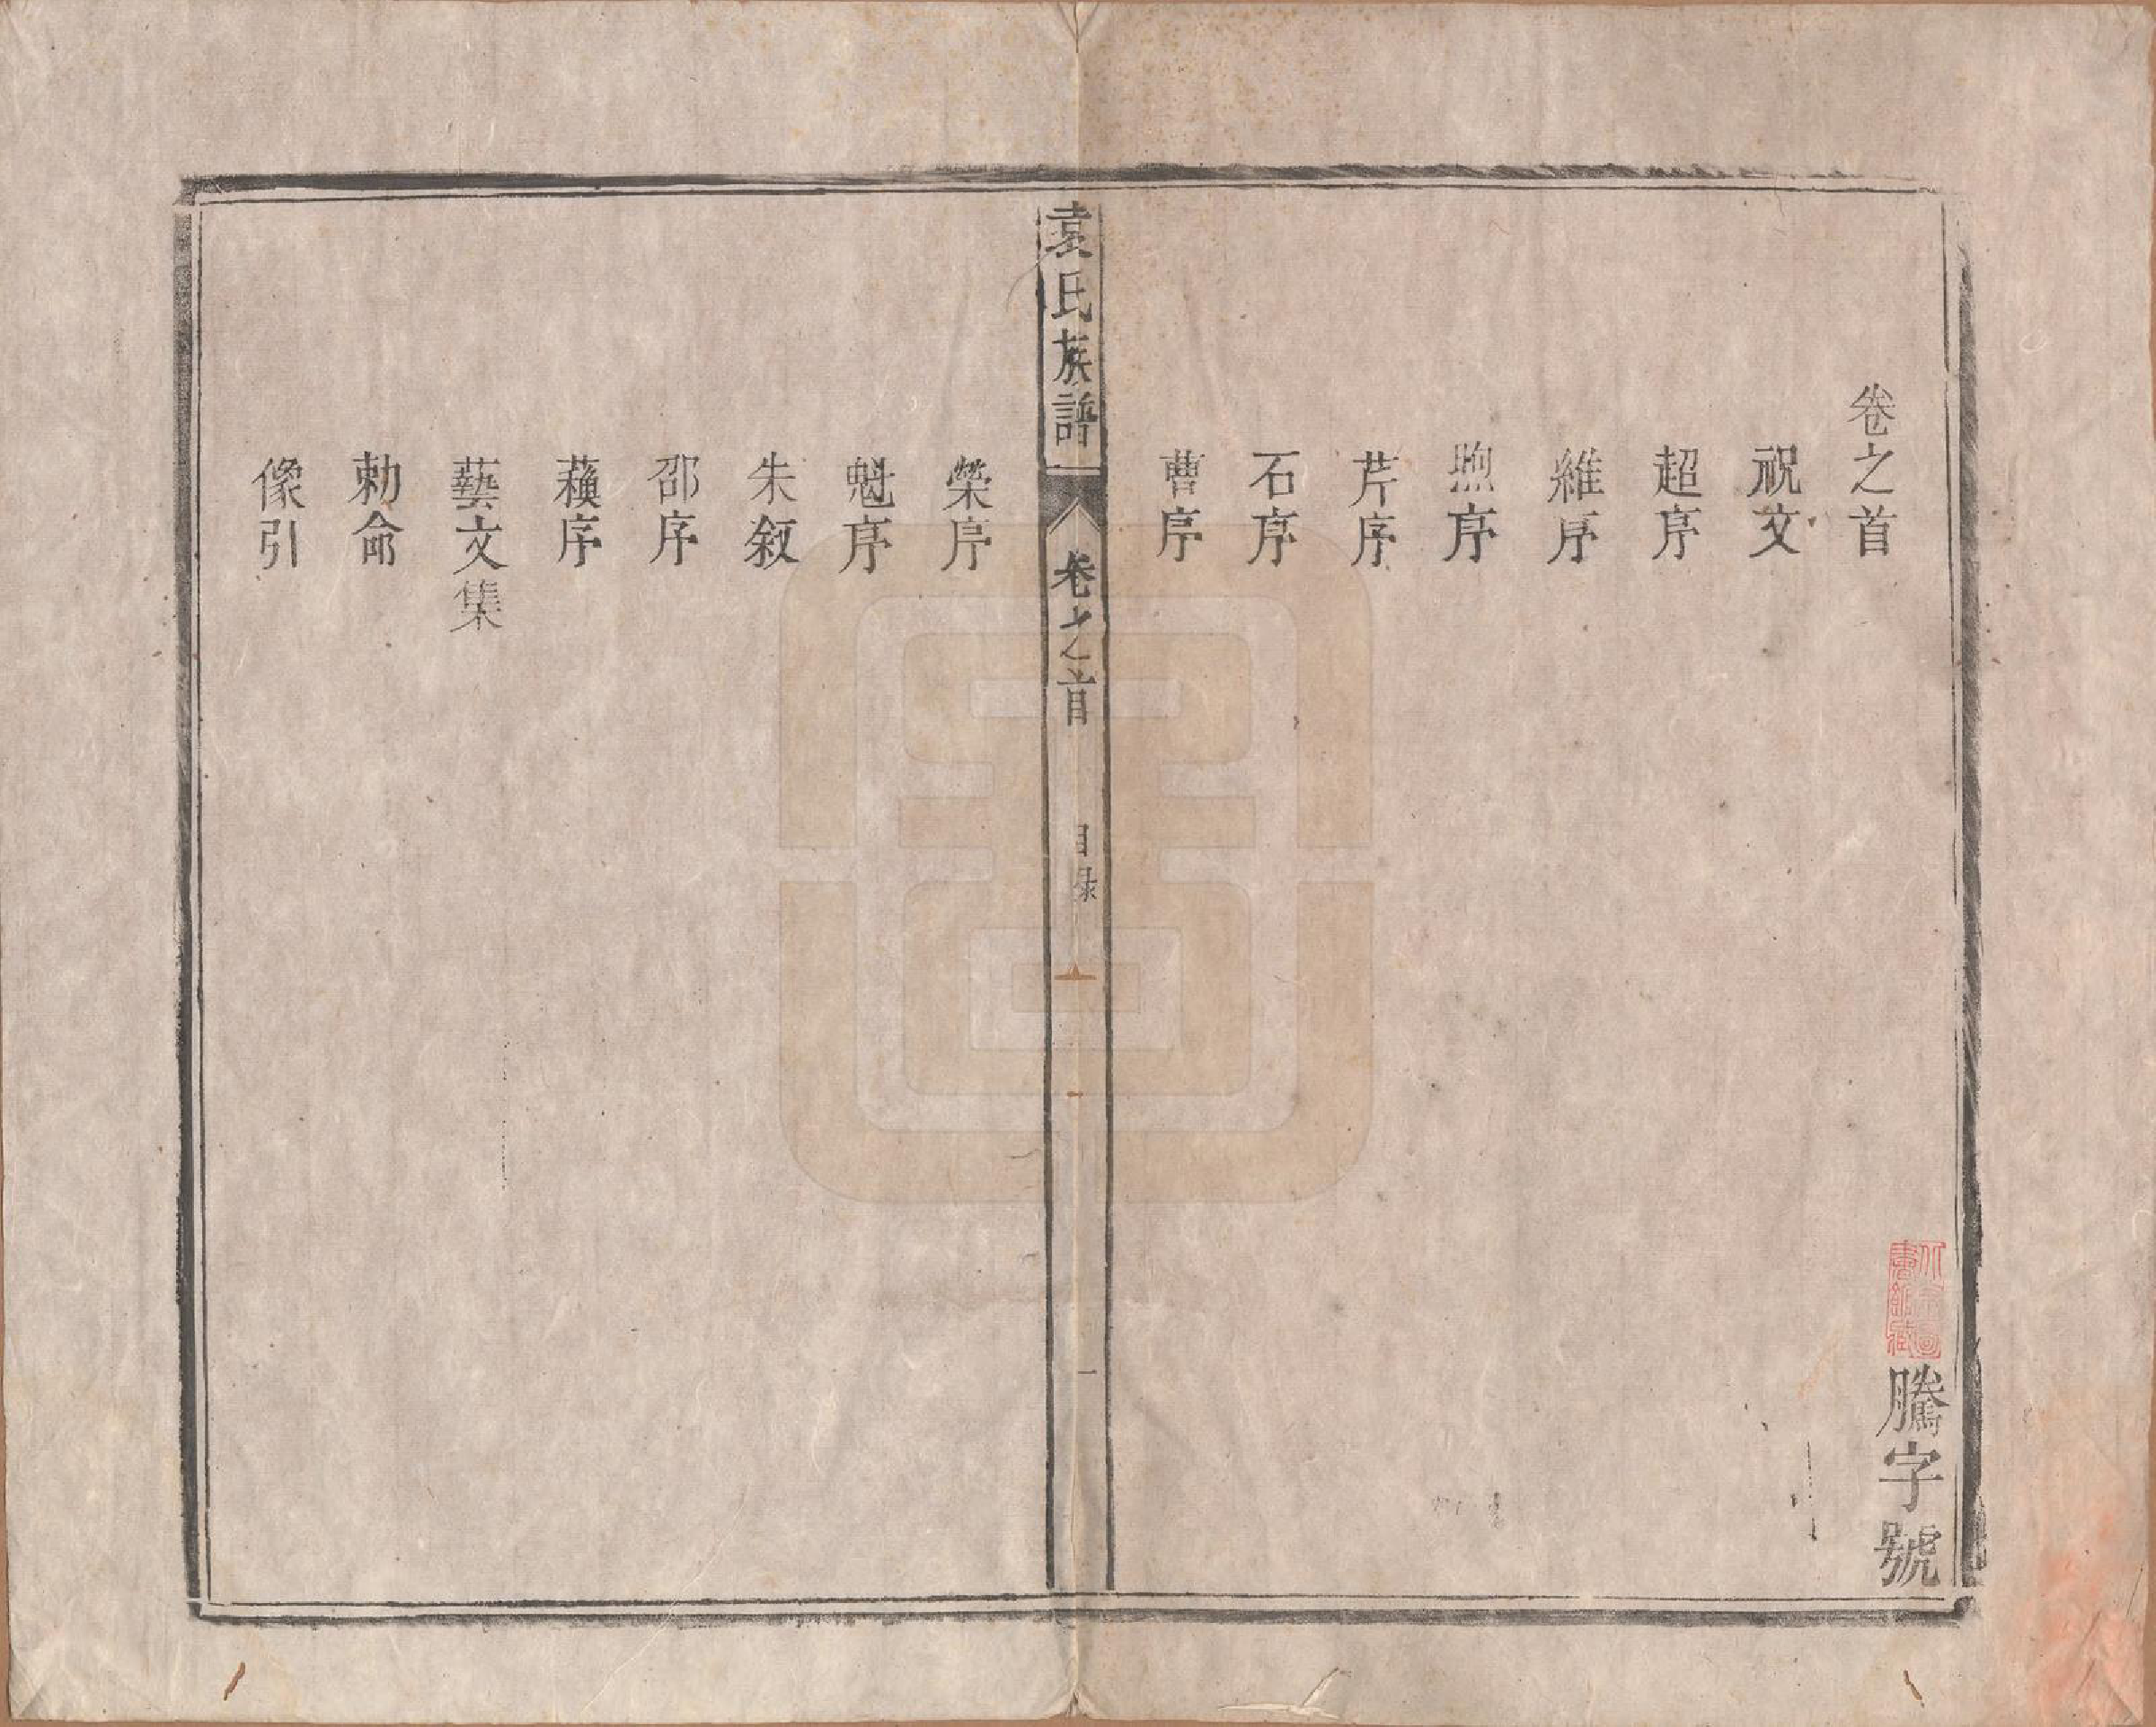 卷之首
祝文
超序
維序
煦序
芹序
石序
曹序
騰字號
袁氏族譜
卷之首
目录
一
榮序
魁序
朱敘
邵序
蘋序
藝文集
勅命
像引